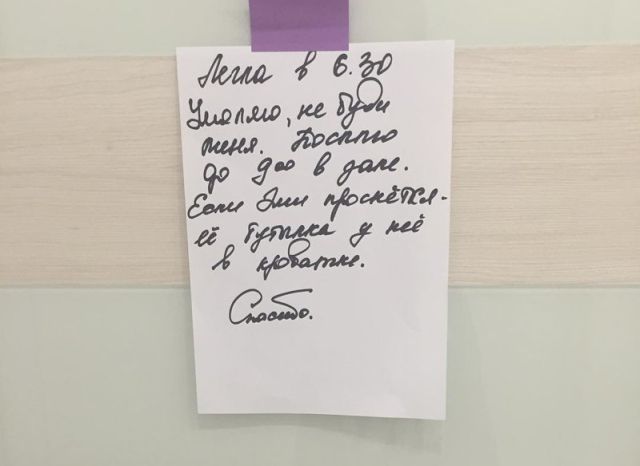 Легла в 6.30
Умоляю, не буди
меня. Посплю
до 9⁰⁰ в зале.
Если Эми проснётся-
её бутылка у неё
в кроватке.
Спасибо.